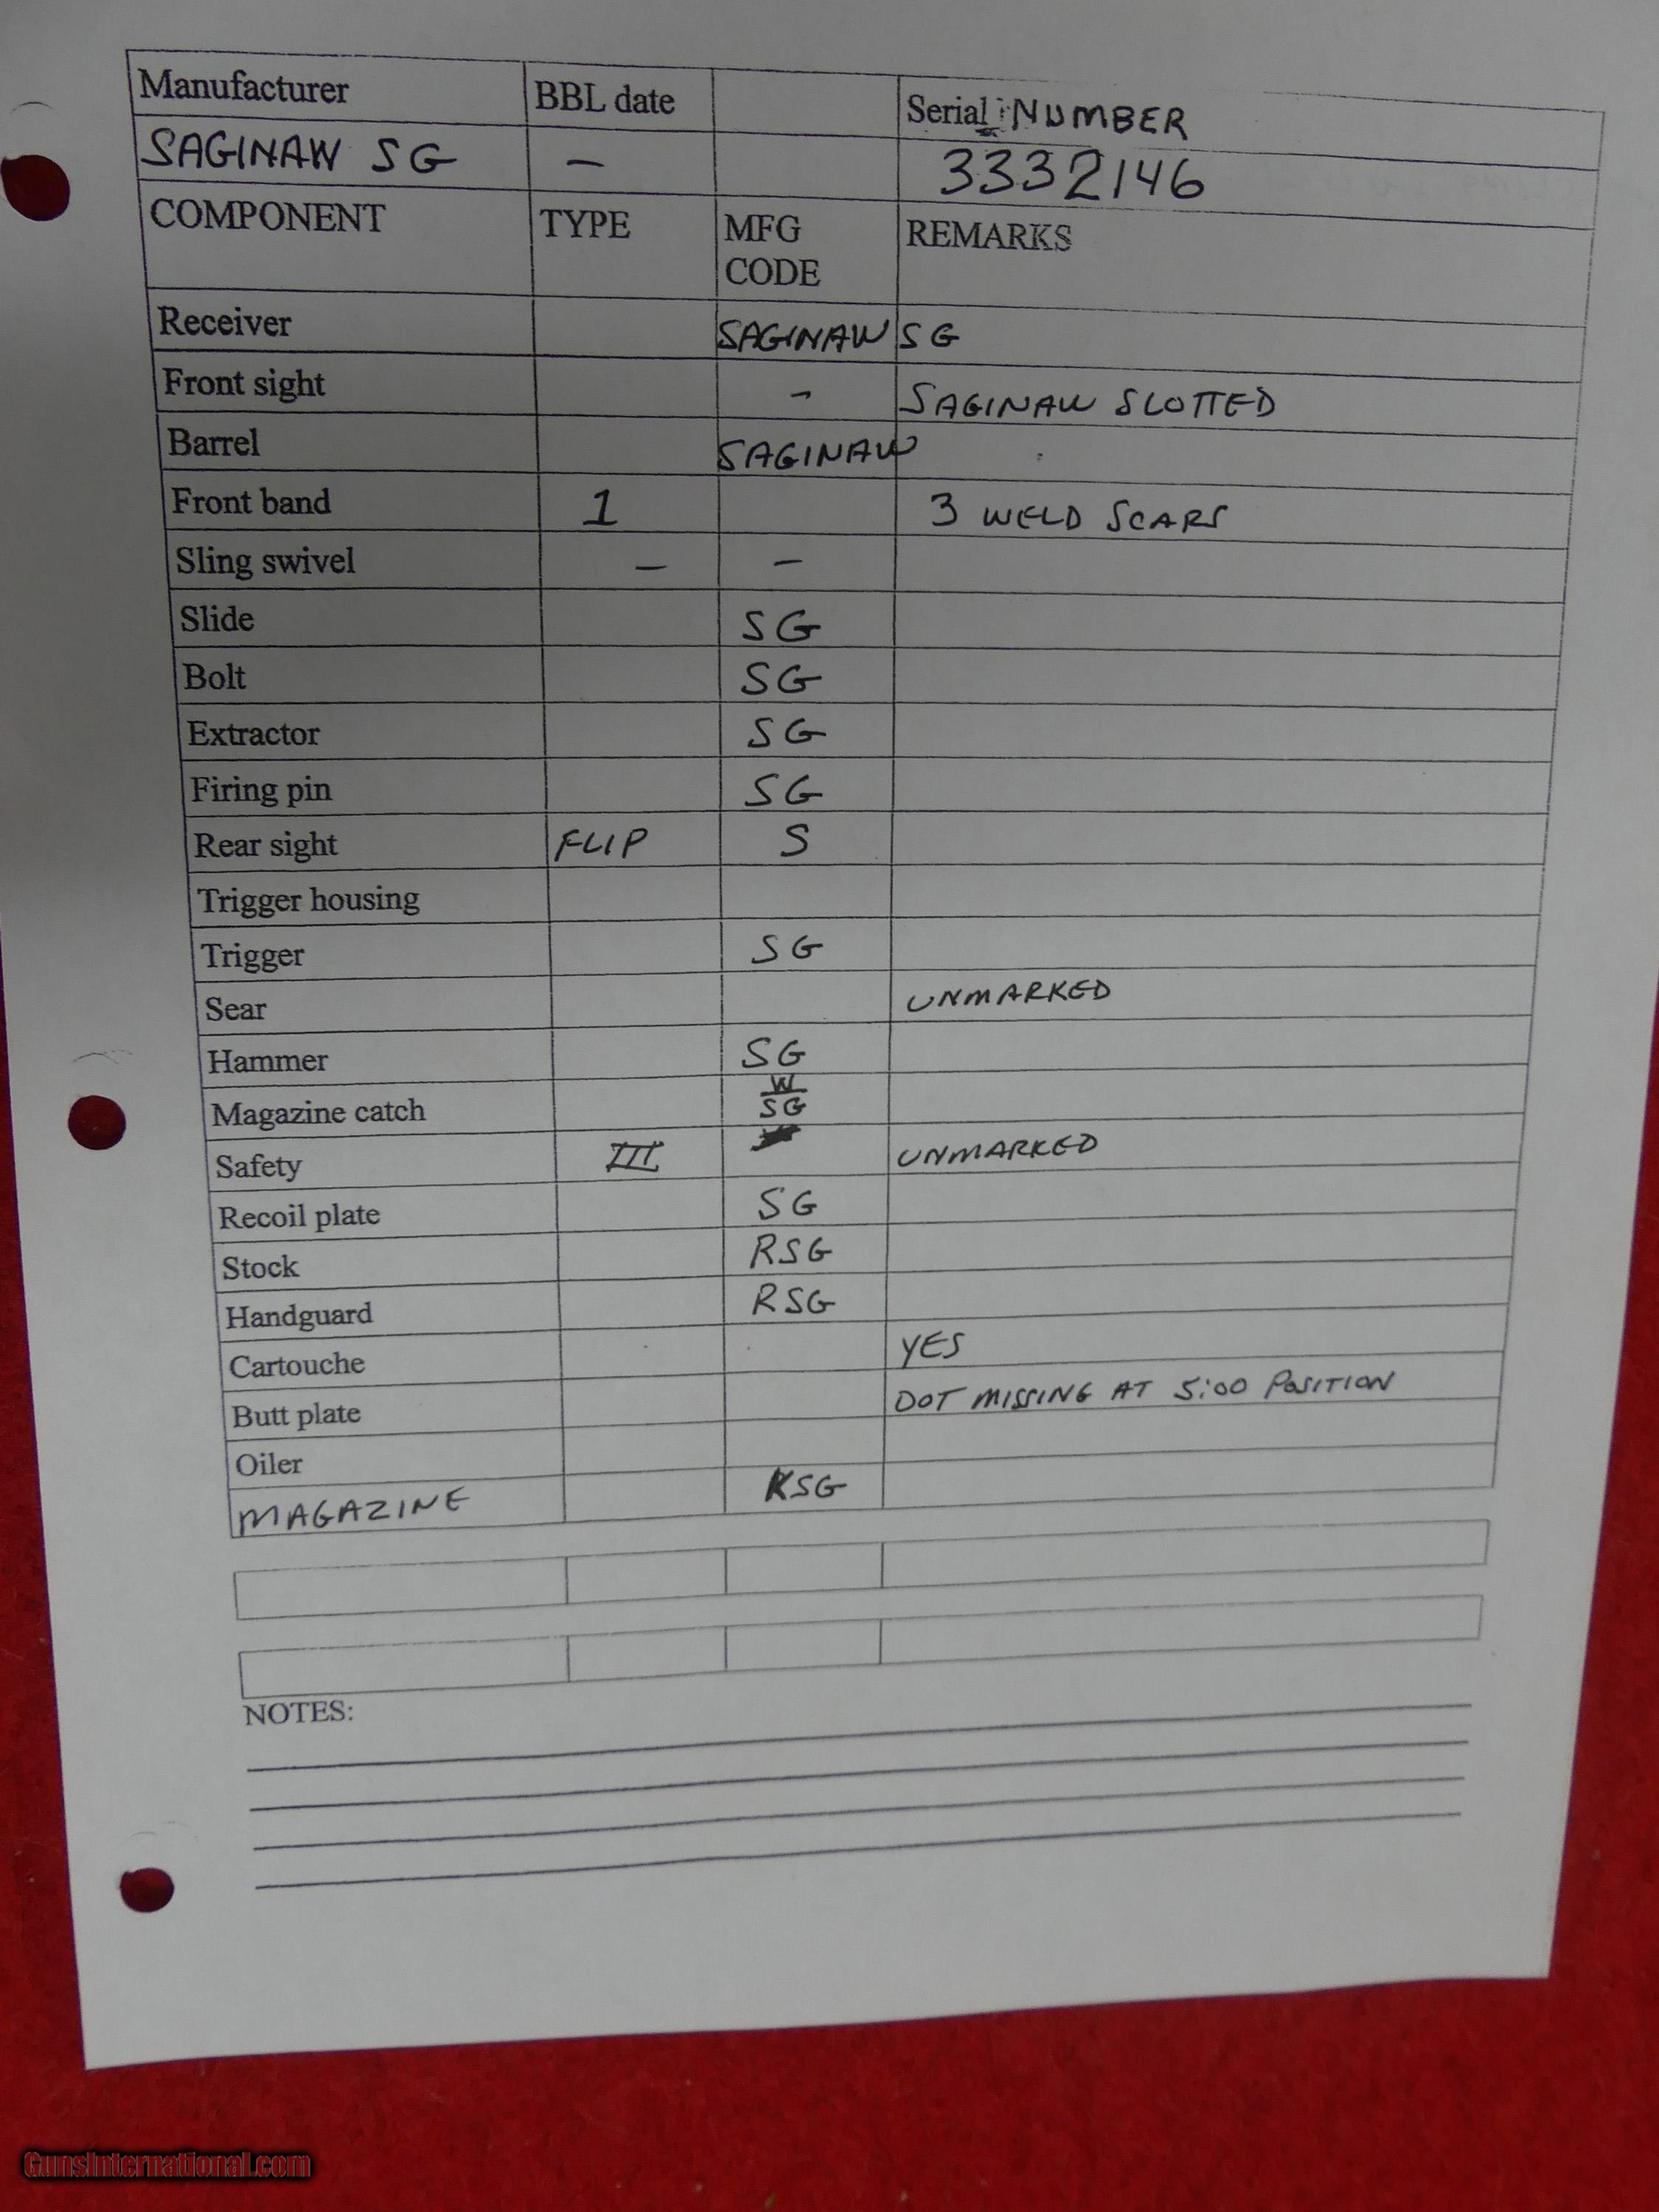 Manufacturer BBL date Serial NUMBER
SAGINAW SG — 3332146
COMPONENT TYPE MFG CODE REMARKS
Receiver SAGINAW SG
Front sight - SAGINAW SLOTTED
Barrel SAGINAW
Front band 1 3 WELD SCARS
Sling swivel — —
Slide SG
Bolt SG
Extractor SG
Firing pin SG
Rear sight FLIP S
Trigger housing
Trigger SG
Sear UNMARKED
Hammer SG
Magazine catch W SG
Safety III UNMARKED
Recoil plate SG
Stock RSG
Handguard RSG
Cartouche YES
Butt plate DOT MISSING AT 5:00 POSITION
Oiler
MAGAZINE KSG
NOTES:
GunsInternational.com